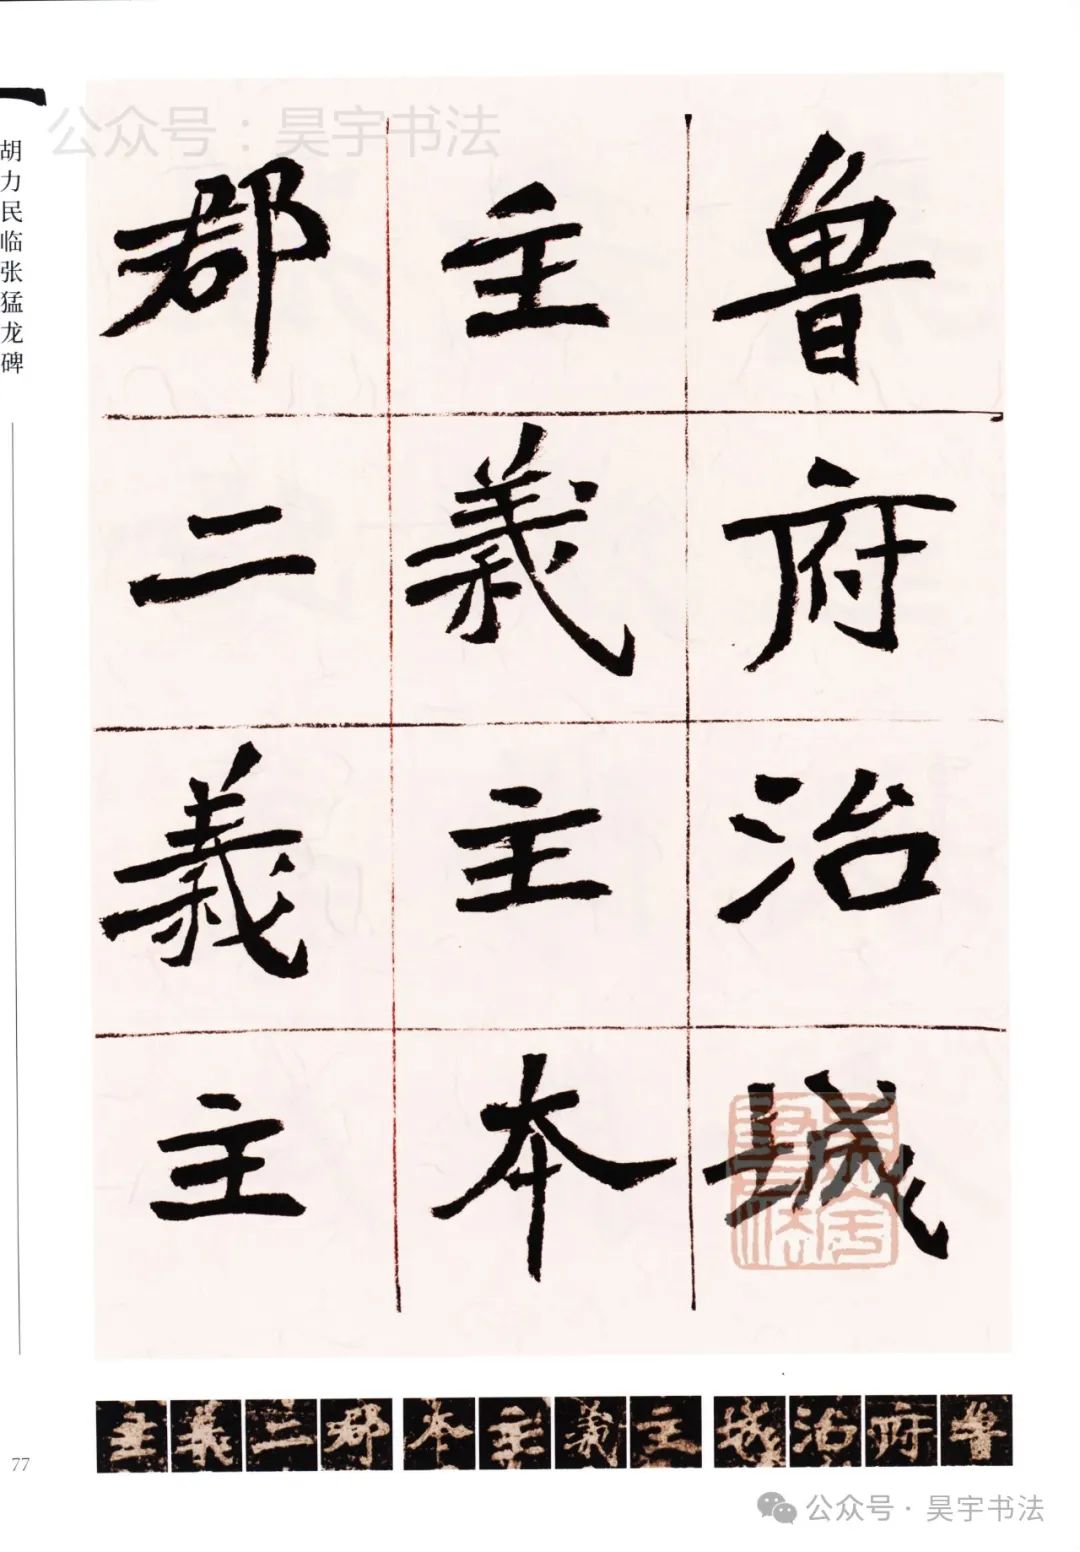 公众号：昊宇书法
胡力民临张猛龙碑
魯府治城
主義主本
郡二義主
主義二郡本主義主城治府魯
77
公众号·昊宇书法